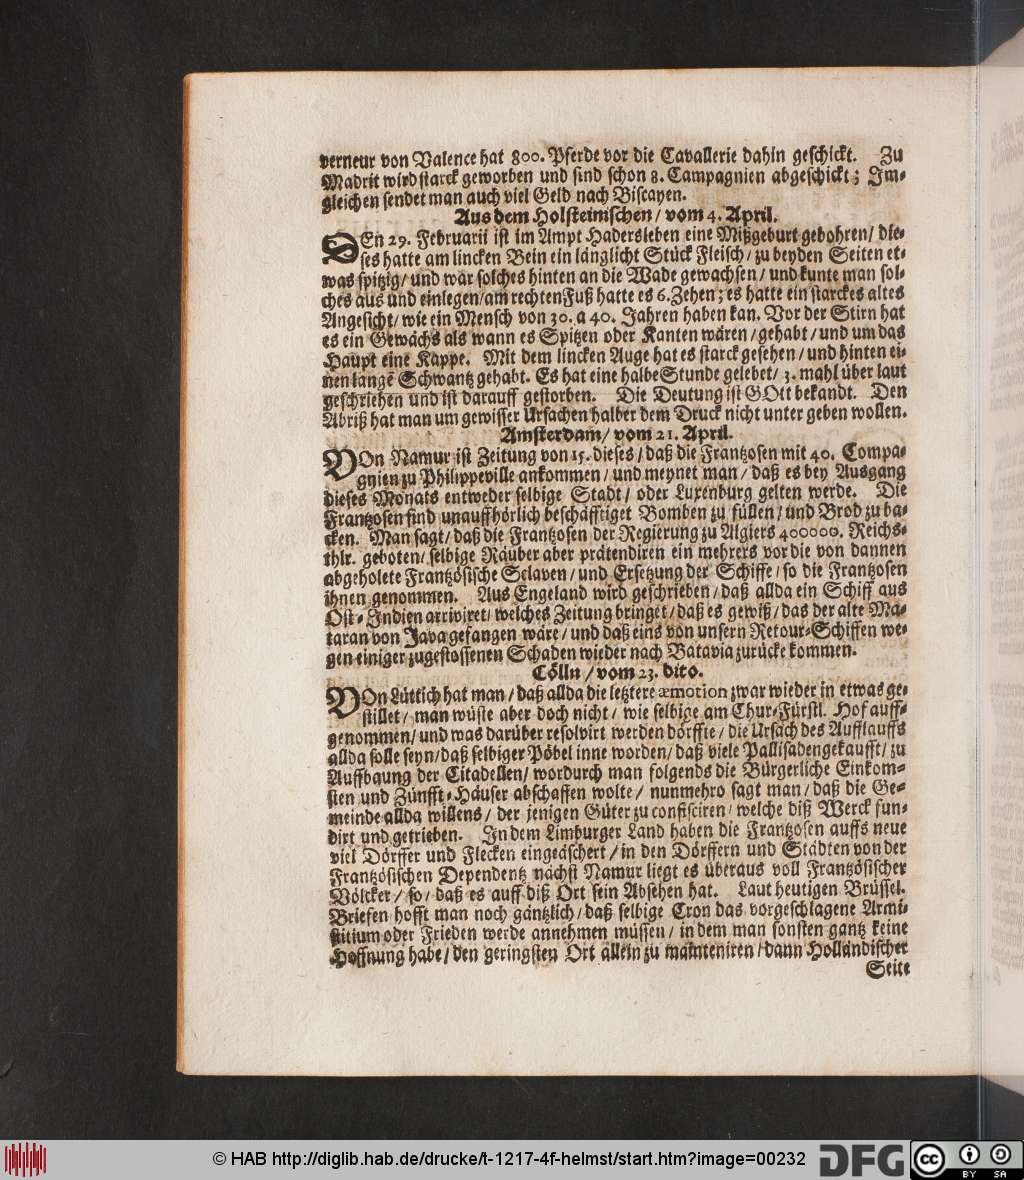 verneur von Valence hat 800. Pferde vor die Cavallerie dahin geschickt. Zu
Madrit wird starck geworben und sind schon 8. Campagnien abgeschickt; Im-
gleichen sendet man auch viel Geld nach Biscayen.
Aus dem Holsteinischen / vom 4. April.
DEn 29. Februarii ist im Ampt Hadersleben eine Mißgeburt gebohren / die-
ses hatte am lincken Bein ein länglicht Stück Fleisch / zu beyden Seiten et-
was spitzig / und wär solches hinten an die Wade gewachsen / und kunte man sol-
ches aus und einlegen / am rechten Fuß hatte es 6. Zehen; es hatte ein starckes altes
Angesicht / wie ein Mensch von 30. a 40. Jahren haben kan. Vor der Stirn hat
es ein Gewächs als wann es Spitzen oder Kanten wären / gehabt / und um das
Haupt eine Kappe. Mit dem lincken Auge hat es starck gesehen / und hinten ei-
nen langẽ Schwantz gehabt. Es hat eine halbe Stunde gelebet / 3. mahl über laut
geschriehen und ist darauff gestorben. Die Deutung ist GOtt bekandt. Den
Abriß hat man um gewisser Ursachen halber dem Druck nicht unter geben wollen.
Amsterdam / vom 21. April.
VOn Namur ist Zeitung von 15. dieses / daß die Frantzosen mit 40. Compa-
gnien zu Philippeville ankommen / und meynet man / daß es bey Ausgang
dieses Monats entweder selbige Stadt / oder Luxenburg gelten werde. Die
Frantzosen sind unauffhörlich beschäfftiget Bomben zu füllen / und Brod zu ba-
cken. Man sagt / daß die Frantzosen der Regierung zu Algiers 400000. Reichs-
thlr. geboten / selbige Räuber aber prätendiren ein mehrers vor die von dannen
abgeholete Frantzösische Sclaven / und Ersetzung der Schiffe / so die Frantzosen
ihnen genommen. Aus Engeland wird geschrieben / daß allda ein Schiff aus
Ost-Indien arriviret / welches Zeitung bringet / daß es gewiß / das der alte Ma-
taran von Java gefangen wäre / und daß eins von unsern Retour-Schiffen we-
gen einiger zugestossenen Schaden wieder nach Batavia zurücke kommen.
Cölln / vom 23. dito.
VOn Lüttich hat man / daß allda die letztere æmotion zwar wieder in etwas ge-
stillet / man wüste aber doch nicht / wie selbige am Chur-Fürstl. Hof auff-
genommen / und was darüber resolvirt werden dörffte / die Ursach des Aufflauffs
allda solle seyn / daß selbiger Pöbel inne worden / daß viele Pallisaden gekaufft / zu
Auffbaung der Citadellen / wordurch man folgends die Bürgerliche Einkom-
sten und Zünfft-Häuser abschaffen wolte / nunmehro sagt man / daß die Ge-
meinde allda willens / der jenigen Güter zu confisciren / welche diß Werck fun-
dirt und getrieben. In dem Limburger Land haben die Frantzosen auffs neue
viel Dörffer und Flecken eingeäschert / in den Dörffern und Städten von der
Frantzösischen Dependentz nächst Namur liegt es überaus voll Frantzösischer
Völcker / so / daß es auff diß Ort sein Absehen hat. Laut heutigen Brüssel.
Briefen hofft man noch gäntzlich / daß selbige Cron das vorgeschlagene Armi-
stitium oder Frieden werde annehmen müssen / in dem man sonsten gantz keine
Hoffnung habe / den geringsten Ort allein zu mainteniren / dann Holländischer
Seite
© HAB http://diglib.hab.de/drucke/t-1217-4f-helmst/start.htm?image=00232
DFG
cc
BY SA